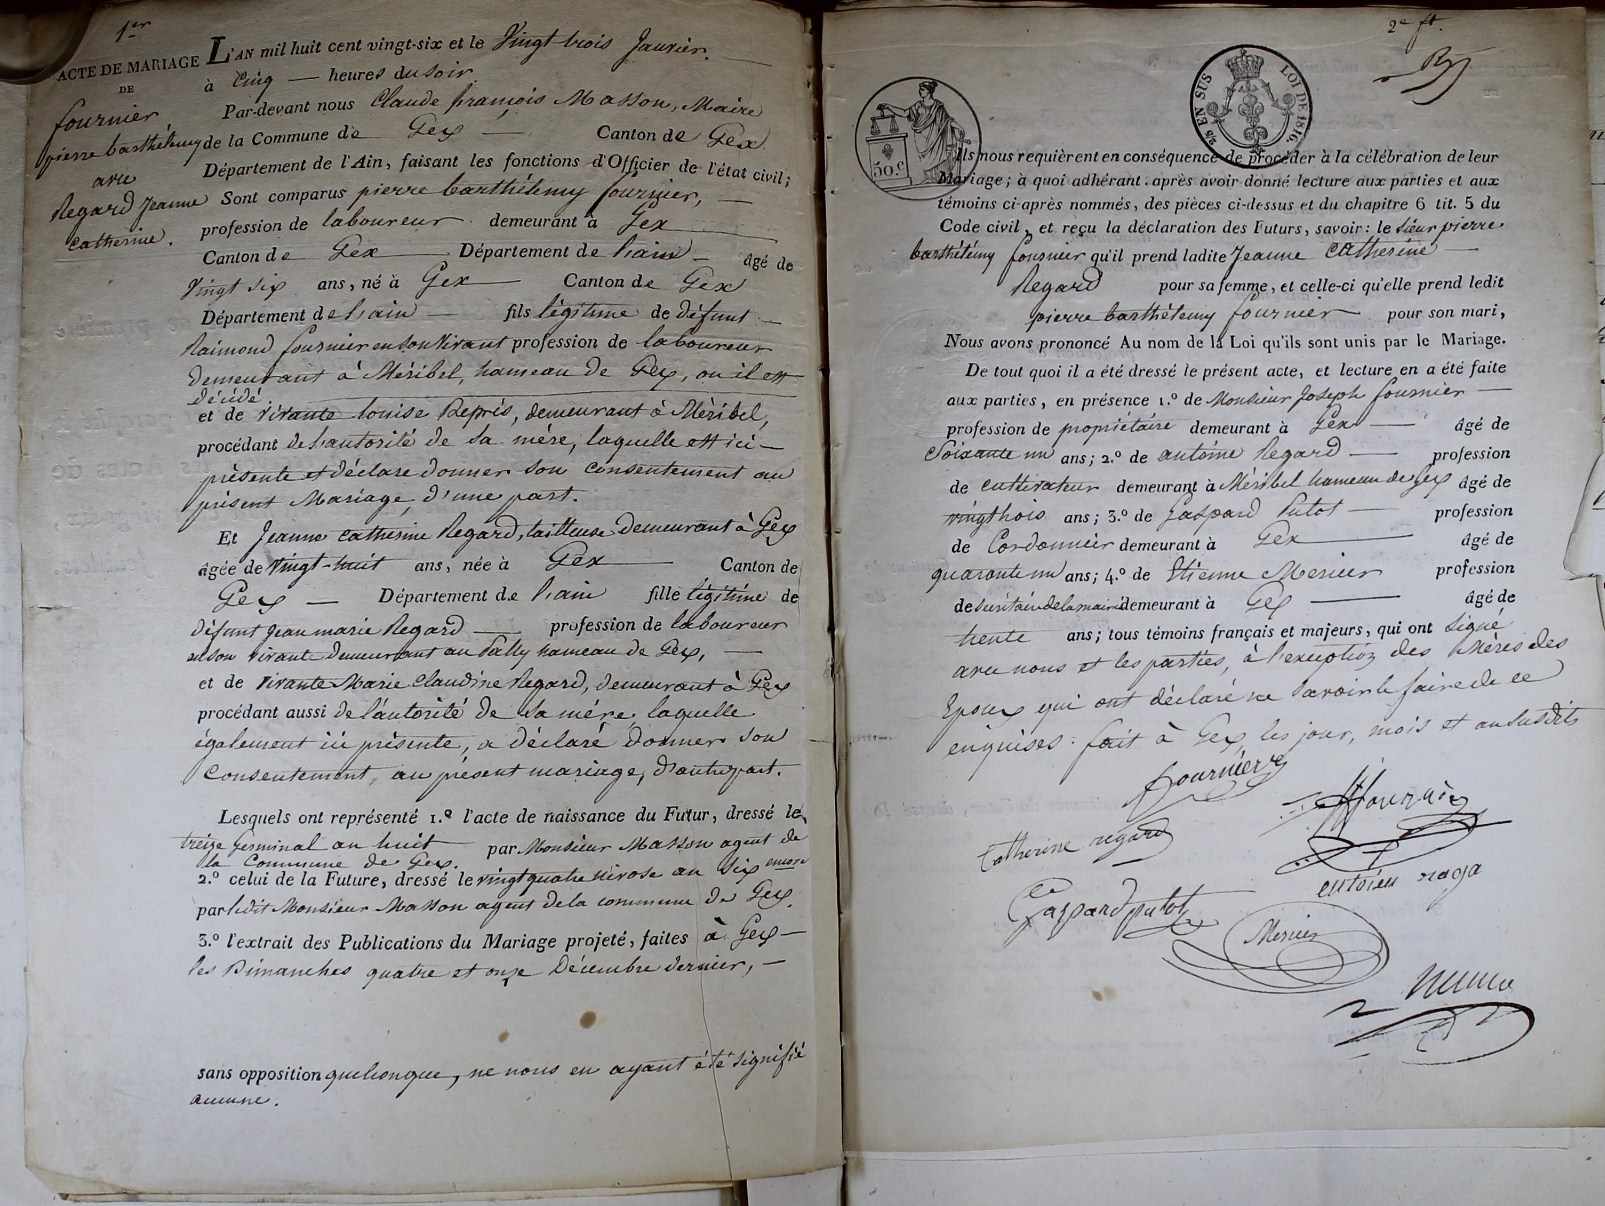 1.er
ACTE DE MARIAGE
DE
fournier
pierre barthélemy
avec
Regard Jeanne
Catherine.
L'AN mil huit cent vingt-six et le Vingt trois Janvier.
à Cinq heures du soir.
Par-devant nous Claude françois Masson, Maire
de la Commune de Gex Canton de Gex
Département de l'Ain, faisant les fonctions d'Officier de l'état civil;
Sont comparus pierre barthélemy fournier,
profession de laboureur demeurant à Gex
Canton de Gex Département de l'ain âgé de
Vingt six ans, né à Gex Canton de Gex
Département de l'ain fils légitime de défunt
Raimond fournier en son vivant profession de laboureur
demeurant à Méribel, hameau de Gex, ou il est
décédé
et de vivante louise Depris, demeurant à Méribel,
procédant de l'autorité de sa mére, laquelle est ici
présente et déclare donner son consentement au
présent Mariage, d'une part.
Et Jeanne catherine Regard, tailleuse demeurant à Gex
âgée de vingt-huit ans, née à Gex Canton de
Gex Département de l'ain fille légitime de
défunt Jean marie Regard profession de laboureur
en son vivante demeurant au hameau de Gex,
et de vivante Marie Claudine Regard, demeurant à Gex
procédant aussi de l'autorité de sa mére, laquelle
également ici présente, a déclaré donner son
consentement, au présent mariage, d'autre part.
Lesquels ont représenté 1.º l'acte de naissance du Futur, dressé le
treize Germinal an huit par Monsieur Masson agent de
la Commune de Gex.
2.º celui de la Future, dressé le vingt quatre nivose an Six encore
par ledit Monsieur Masson agent de la commune de Gex.
3.º l'extrait des Publications du Mariage projeté, faites à Gex
les Dimanches quatre et onze Décembre dernier,
sans opposition quelconque, ne nous en ayant été signifié
aucune.
2e ft.
50.c
2/5 EN SUS LOI DE 1816.
Ils nous requièrent en conséquence de procéder à la célébration de leur
Mariage; à quoi adhérant, après avoir donné lecture aux parties et aux
témoins ci-après nommés, des pièces ci-dessus et du chapitre 6 tit. 5 du
Code civil, et reçu la déclaration des Futurs, savoir: le sieur pierre
barthélemy fournier qu'il prend ladite Jeanne Catherine
Regard pour sa femme, et celle-ci qu'elle prend ledit
pierre barthélemy fournier pour son mari,
Nous avons prononcé Au nom de la Loi qu'ils sont unis par le Mariage.
De tout quoi il a été dressé le présent acte, et lecture en a été faite
aux parties, en présence 1.º de Monsieur Joseph fournier
profession de propriétaire demeurant à Gex âgé de
Soixante un ans; 2.º de antoine Regard profession
de cultivateur demeurant à Méribel hameau de Gex âgé de
vingt trois ans; 3.º de Gaspard Putot profession
de Cordonnier demeurant à Gex âgé de
quarante un ans; 4.º de Etienne Mercier profession
de secrétaire de la mairie demeurant à Gex âgé de
trente ans; tous témoins français et majeurs, qui ont signé
avec nous et les parties, à l'exception des Mères des
Epoux qui ont déclaré ne savoir le faire de ce
enquises. fait à Gex les jour, mois et an susdits
fournier
fournier
Catherine regard
Gaspard putot
Mercier